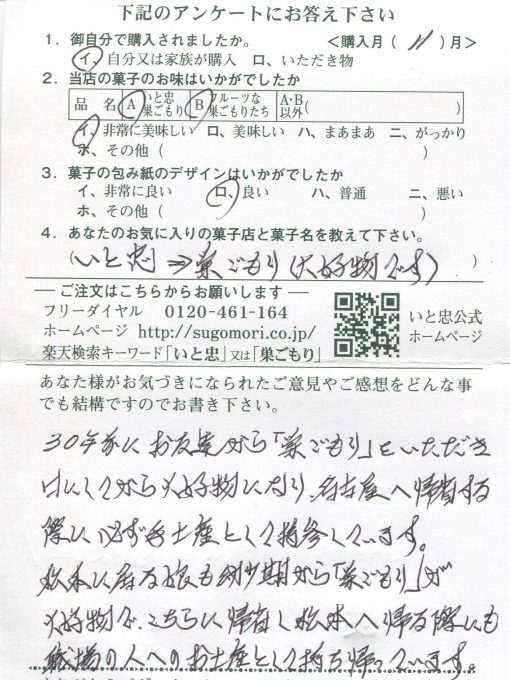 下記のアンケートにお答え下さい
1. 御自分で購入されましたか。 ＜購入月（ 11 ）月＞
イ、自分又は家族が購入 ロ、いただき物
2. 当店の菓子のお味はいかがでしたか
品 名 A いと忠巣ごもり B フルーツな巣ごもりたち A・B以外（ ）
イ、非常に美味しい ロ、美味しい ハ、まあまあ ニ、がっかり
ホ、その他（ ）
3. 菓子の包み紙のデザインはいかがでしたか
イ、非常に良い ロ、良い ハ、普通 ニ、悪い
ホ、その他（ ）
4. あなたのお気に入りの菓子店と菓子名を教えて下さい。
（いと忠 ⇒ 巣ごもり（大好物です） ）
― ご注文はこちらからお願いします ―
フリーダイヤル 0120-461-164
ホームページ http://sugomori.co.jp/
楽天検索キーワード「いと忠」又は「巣ごもり」
いと忠公式
ホームページ
あなた様がお気づきになられたご意見やご感想をどんな事
でも結構ですのでお書き下さい。
30年前にお友達から「巣ごもり」をいただき
ましてから大好物になり、名古屋へ帰省する
際に必ず手土産として持参しています。
松本に居る娘も幼少期から「巣ごもり」が
大好物で、こちらに帰省し松本へ帰る際にも
職場の人へのお土産として持ち帰っています。